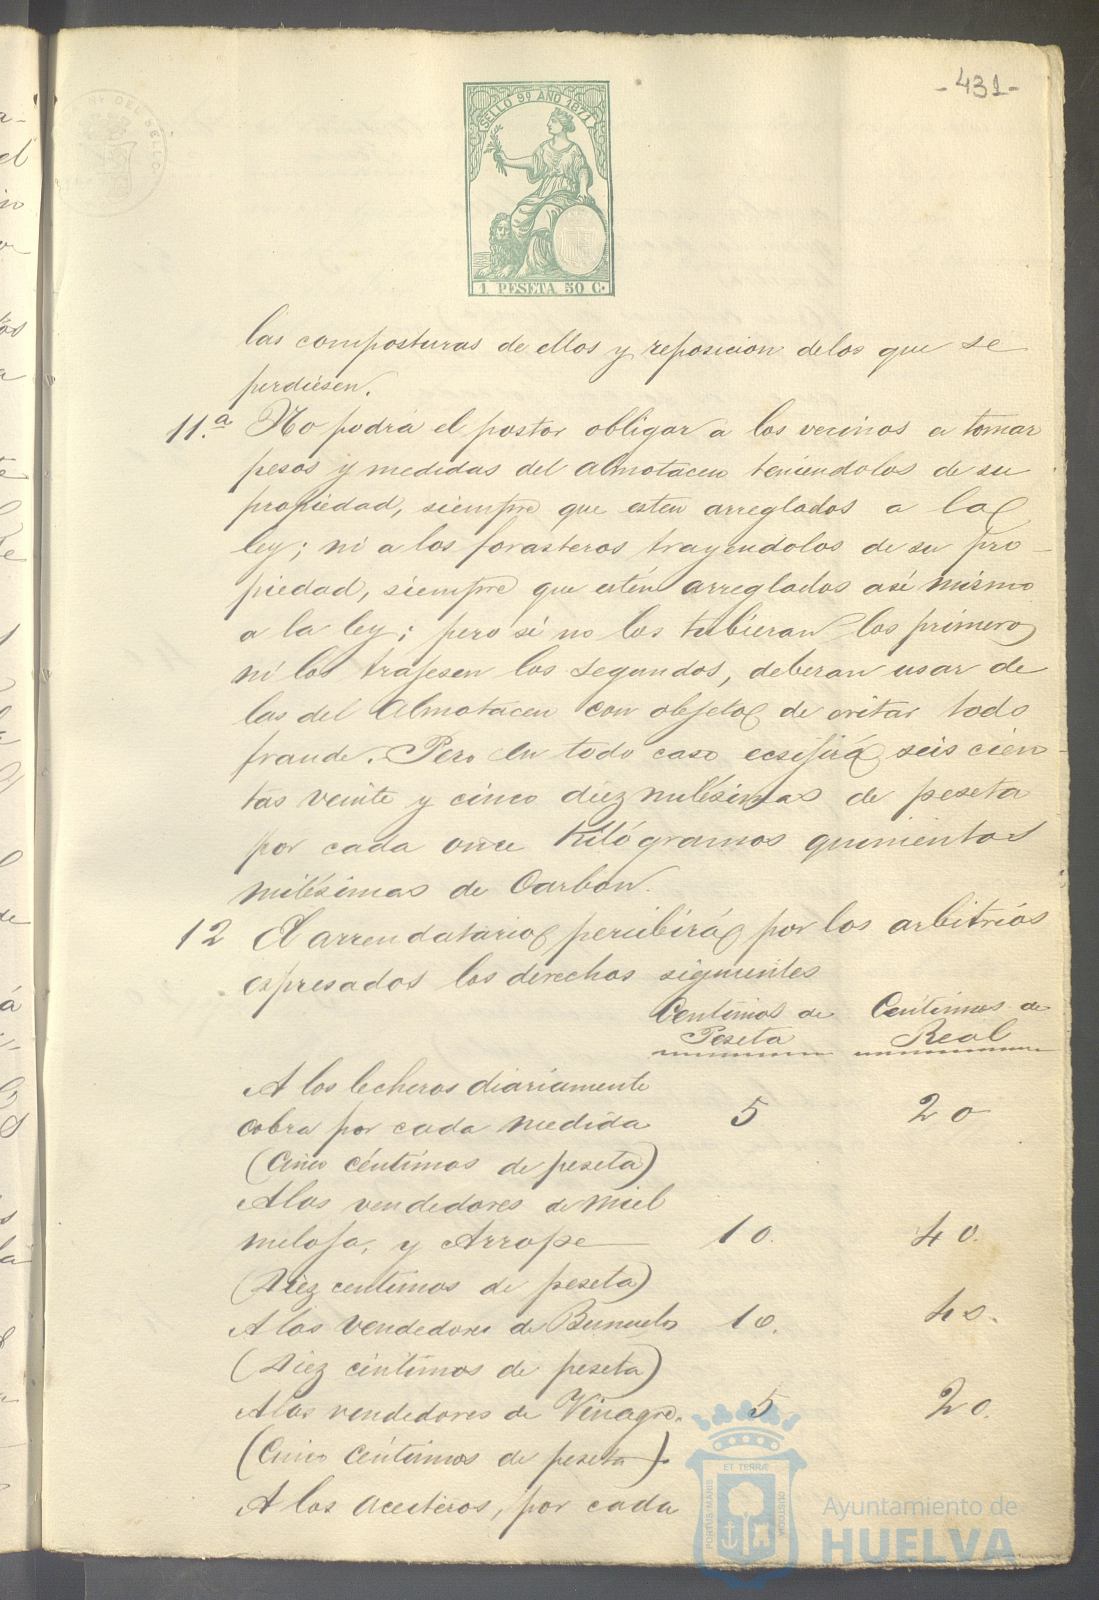 -431-
SELLO 9º AÑO 1871
1 PESETA 50 C.
las composturas de ellos y reposicion delos que se
perdiesen.
11.ª No podrá el postor obligar a los vecinos a tomar
pesos y medidas del Almotacen teniendolos de su
propiedad, siempre que esten arreglados a la
ley; ni a los forasteros trayendolos de su pro-
piedad, siempre que estén arreglados asi mismo
a la ley; pero si no los tubieran los primeros
ni los trajesen los segundos, deberan usar de
las del Almotacen con objeto de evitar todo
fraude. Pero en todo caso ecsijirá seis cien-
tas veinte y cinco diez milésimas de peseta
por cada once Kilógramos quinientos
milésimas de Carbon.
12 El arrendatario percibirá por los arbitrios
espresados los derechos siguientes
Centimos de Peseta
Centimos de Real
A los lecheros diariamente
cobra por cada medida 5 20
(Cinco céntimos de peseta)
A los vendedores de miel
meloja, y Arrope 10. 40.
(Diez centimos de peseta)
A los vendedores de Bunuelos 10. 40.
(Diez céntimos de peseta)
A los vendedores de Vinagre. 5 20.
(Cinco céntimos de peseta).
A los aceiteros, por cada
ET TERRÆ
PORTUS MARIS
CUSTODIA
Ayuntamiento de
HUELVA